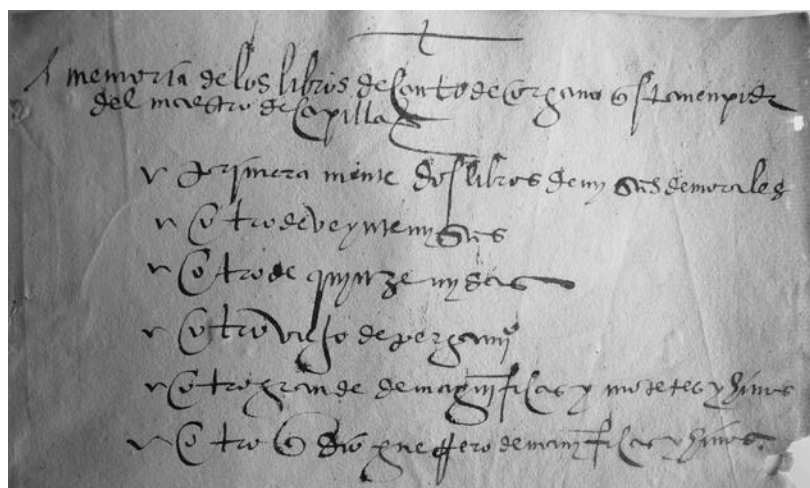 memoria de los libros de canto de organo q estan en pider
del maestro de capilla
primera mente dos libros de misas de morales
otro de veynte misas
otro de quinze misas
otro viejo de pergamino
otro grande de magnificas y motetes y hinos
otro q dio guerrero de manificas y hinos